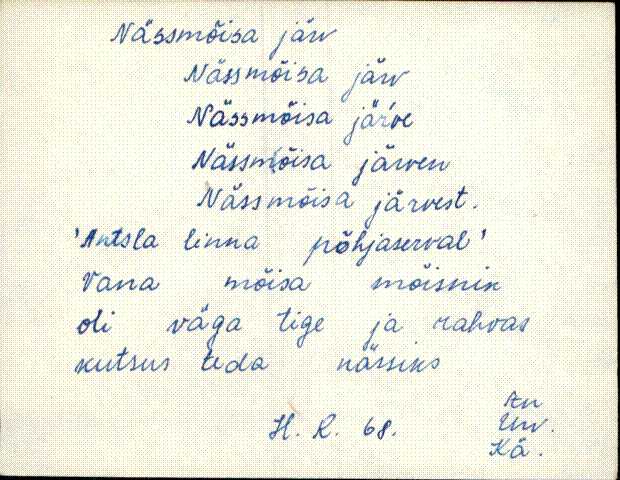 Nässmõisa järv
Nässmõisa järv
Nässmõisa jär've
Nässmõisa järven
Nässmõisa järvest.
'Antsla linna põhjaserval'
Vana mõisa mõisnik
oli väga tige ja rahvas
kutsus teda nässiks
H. R. 68.
An
Urv.
Kä.